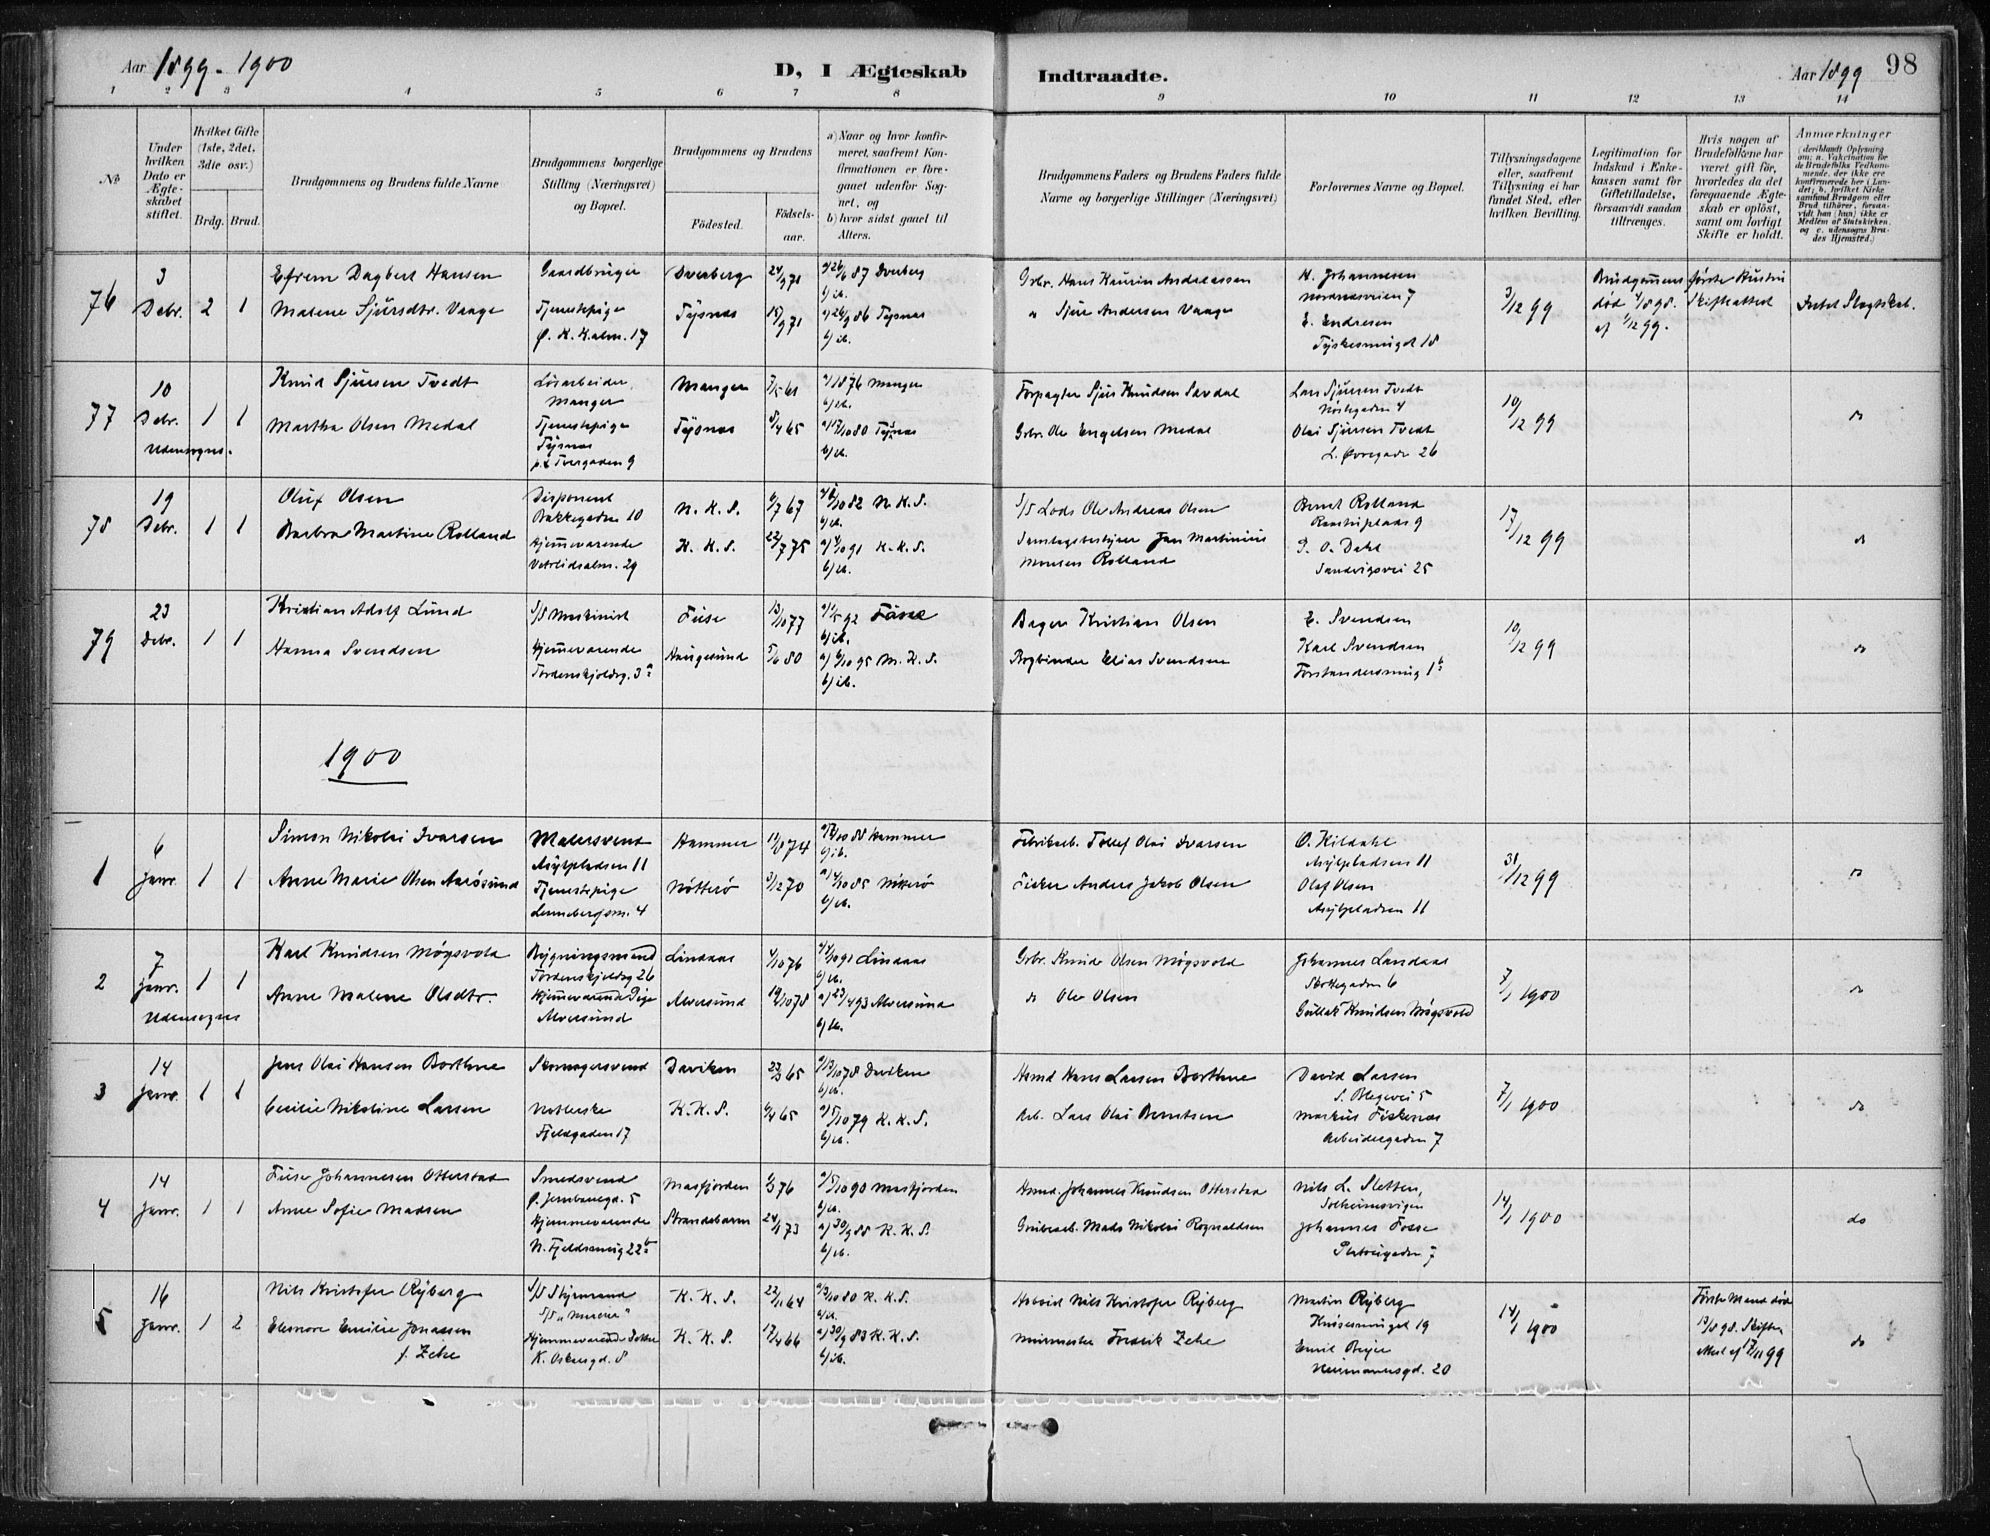 Aar 1899-1900
D, I Ægteskab
Indtraadte.
Aar 1899
98
1 2 3 4 5 6 7 8 9 10 11 12 13 14
No
Under hvilken Dato er Ægteskabet stiftet.
Hvilket Gifte (1ste, 2det, 3die osv.)
Brdg. Brud.
Brudgommens og Brudens fulde Navne
Brudgommens borgerlige Stilling (Næringsvei) og Bopæl.
Brudgommens og Brudens
Födested.
Födselsaar.
a) Naar og hvor konfirmeret, saafremt Konfirmationen er foregaaet udenfor Sognet, og
b) hvor sidst gaaet til Alters.
Brudgommens Faders og Brudens Faders fulde Navne og borgerlige Stillinger (Næringsvei)
Forlovernes Navne og Bopæl.
Tillysningsdagene eller, saafremt Tillysning ei har fundet Sted, efter hvilken Bevilling.
Legitimation for Indskud i Enkekassen samt for Giftetilladelse, forsaavidt saadan tiltrænges.
Hvis nogen af Brudefolkene har været gift för, hvorledes da det foregaaende Ægteskab er oplöst, samt om lovligt Skifte er holdt.
Anmærkninger
(deriblandt Oplysning om: a. Vakcination for de Brudefolks Vedkommende, der ikke ere konfirmerede her i Landet; b. hvilket Kirkesamfund Brudgom eller Brud tilhörer, forsaavidt han (hun) ikke er Medlem af Statskirken, og c. udensogns Brudes Hjemsted.)
76
3 Debr. 2 1
Efrem Dagbert Hansen
Malene Sjursdtr. Vaage
Gaardbruger
Tjenestepige
Ø. K. Kalm. 17
Dverberg
Tysnes
a) 26/6 87 Dverberg
b) ib.
a) 26/9 86 Tysnes
b) ib.
Grbr. Hans Kaurin Andreassen
" Sjur Andersen Vaage
H. Johannesen
Nordnæsveien 7
E. Endresen
Tyskesmuget 18
3/12 99
Brudgommens første Hustru
død 4/8 98. Skifteattest
af 1/12 99.
Intet Slægtskab.
77
10 Debr. 1 1
Udensogns.
Knud Sjursen Tvedt
Martha Olsen Medal
Løsarbeider,
Manger
Tjenestepige
Tysnes
p.t. Tvergaden 9
Manger
Tysnes
8/4 65
a) 18 76 Manger
b) ib.
a) 17/10 80 Tysnes
b) ib.
Forpagter Sjur Knudsen Savdal
Grbr. Ole Engelsen Medal
Lars Sjursen Tvedt
Nøstegaden 4
Olai Sjursen Tvedt
L. Øvregade 26
10/12 99
do
78
19 Debr. 1 1
Oluf Olsen
Barbra Martine Rolland
Disponent
Bakkegaden 10
Hjemmeværende
Vetrlidsalm. 29
N. K. S.
K. K. S.
6/7 67
22/7 75
a) 8/10 82 N. K. S.
b) ib.
a) 4/10 91 K. K. S.
b) ib.
S/S Lods Ole Andreas Olsen
Jan Martinius
Monsen Rolland
Bernt Rolland
9
P. O. Dahl
Sandvigsvei 25
17/12 99
do
79
23 Debr. 1 1
Kristian Adolf Lund
Hanna Svendsen
S/S Maskinist
Hjemmeværende
Tordenskjoldsg. 3a
Fuse
Haugesund
13/10 77
5/6 80
a) 1/5 92 Fuse
b) ib.
a) 6/10 95 N. K. S.
b) ib.
Bager Kristian Olsen
Bogbinder Elias Svendsen
E. Svendsen
Karl Svendsen
Forstandersmug 1b
10/12 99
do
1900
1
6 Janr. 1 1
Simon Nikolai Ivarsen
Anne Marie Olsen Aarøsund
Malersvend
Asylpladsen 11
Tjenestepige
Lennebergsm. 4
Hammer
Nötterö
11/8 74
3/12 70
10 88 Hammer
b) ib.
a) 4/10 85 Nötterö
b) ib.
Fabrikarb. Tollef Olai Ivarsen
Fisker Anders Jakob Olsen
O. Kildahl
Asylpladsen 11
Olaf Olsen
Asylpladsen 11
31/12 99
do
2
7 Janr. 1 1
Udensogns
Karl Knudsen Møgsvold
Anne Malene Olsdtr.
Bygningsmand
Tordenskjoldsg 26
Hjemmeværende Pige
Alversund
Lindaas
Alversund
4/10 76
19/10 78
a) 4/10 91 Lindaas
b) ib.
a) 23/4 93 Alversund
b) ib.
Grbr. Knud Olsen Møgsvold
do Ole Olsen
Johannes Landaas
Skottegaden 6
Gullak Knudsen Møgsvold
7/1 1900
do
3
14 Janr. 1 1
Jens Olai Hansen Borthne
Cecilie Nikoline Larsen
Skomagersvend
Fjeldgaden 17
Daviken
K. K. S.
65
65
a) 13/10 78 Daviken
b) ib.
a) 5/10 79 K. K. S.
b) ib.
Hsmd Hans Larsen Borthne
Arb. Lars Olai Berntsen
David Larsen
S. Blegevei 5
Markus Fiskenes
Arbeidergaden 7
7/1 1900
do
4
14 Janr. 1 1
Johannesen Otterstad
Anne Sofie Madsen
Smedsvend
Ø. Jernbanegd. 5
Hjemmeværende
N. Fjeldsmug 22b
Masfjorden
Strandebarm
76
73
a) 5/10 90 Masfjorden
b) ib.
a) 30/9 88 K. K. S.
b) ib.
Hsmd. Johannes Knudsen Otterstad
Grubearb. Mads Nikolai Rognaldsen
Nils L. Sletten,
Solheimsvigen
Johannes Fosse
7
14/1 1900
do
5
16 Janr. 1 2
Nils Kristofer Ryberg
Eleonore Emilie Jonassen
f. Zehe
S/S Styrmand
S/S "Mercur"
Hjemmeværende Enke
K. Oskarsgd. 8
K. K. S.
K. K. S.
22/11 64
17/4 66
a) 3/10 80 K. K. S.
b) ib.
a) 30/9 83 K. K. S.
b) ib.
Nils Kristofer Ryberg
Murmester Fredrik Zehe
Martin Ryberg
19
Emil Beyer
Neumannsgd. 20
14/1 1900
Første Mand død
13/8 98. Skifte
af 17/11 99
do